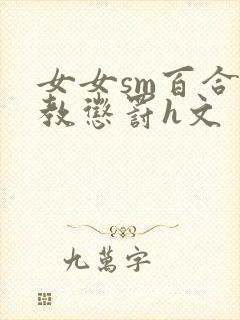 女女sm百合
教懲罰h文
九萬字